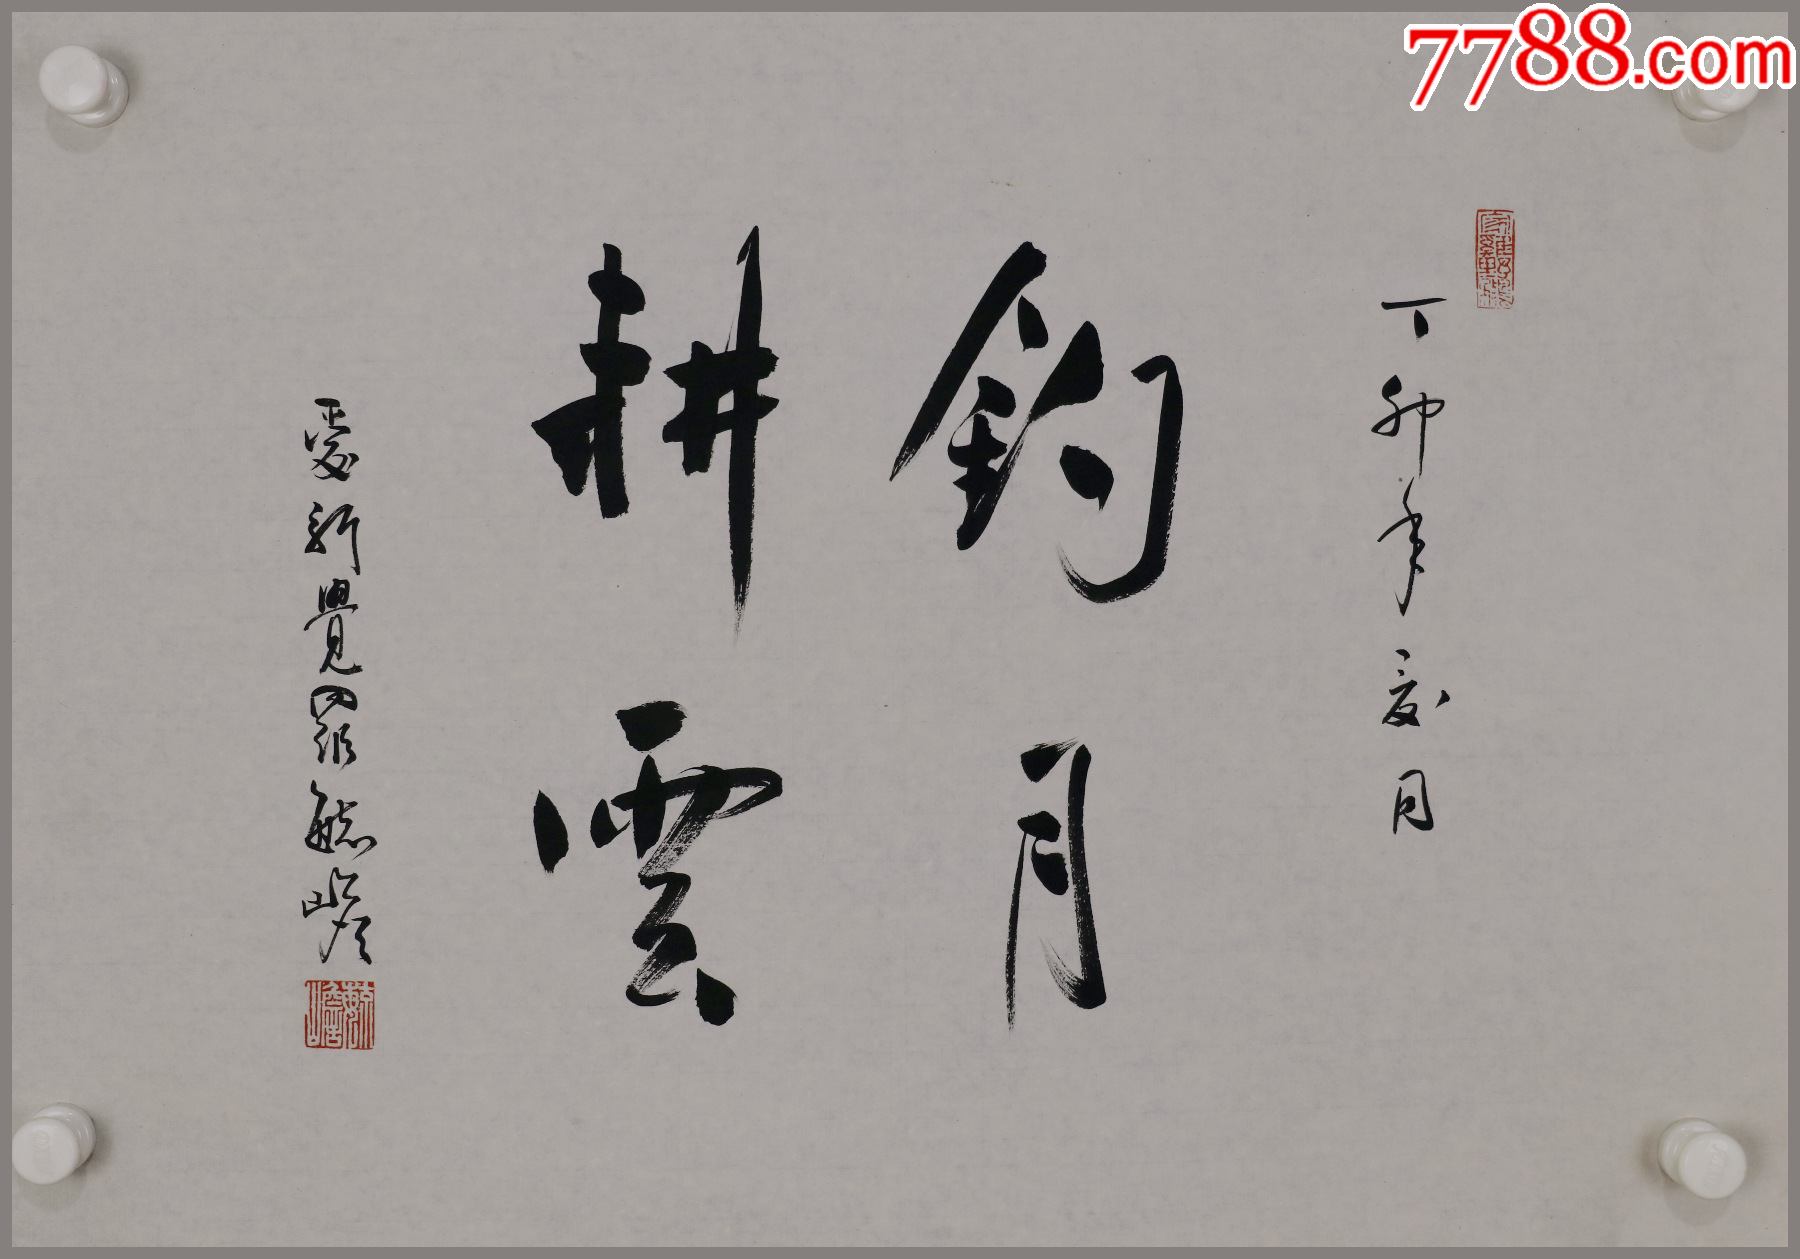 7788.com
丁卯年夏月
釣月
耕雲
愛新覺羅毓嶦
毓嶦